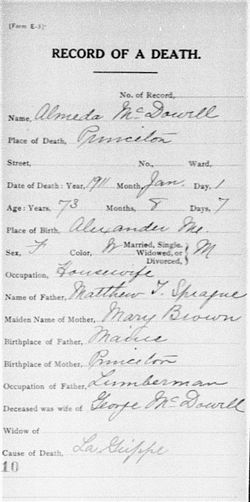 [Form E-3]
RECORD OF A DEATH.
No. of Record,
Name, Almeda McDowell
Place of Death, Princeton
Street, No., Ward,
Date of Death: Year, 1911 Month, Jan. Day, 1
Age: Years, 73 Months, 8 Days, 7
Place of Birth, Alexander Me.
Sex, F Color, W Married, Single, Widowed, or Divorced, } M
Occupation, Housewife
Name of Father, Matthew T. Sprague
Maiden Name of Mother, Mary Brown
Birthplace of Father, Maine
Birthplace of Mother, Princeton
Occupation of Father, Lumberman
Deceased was wife of George McDowell
Widow of
Cause of Death, La Grippe
10